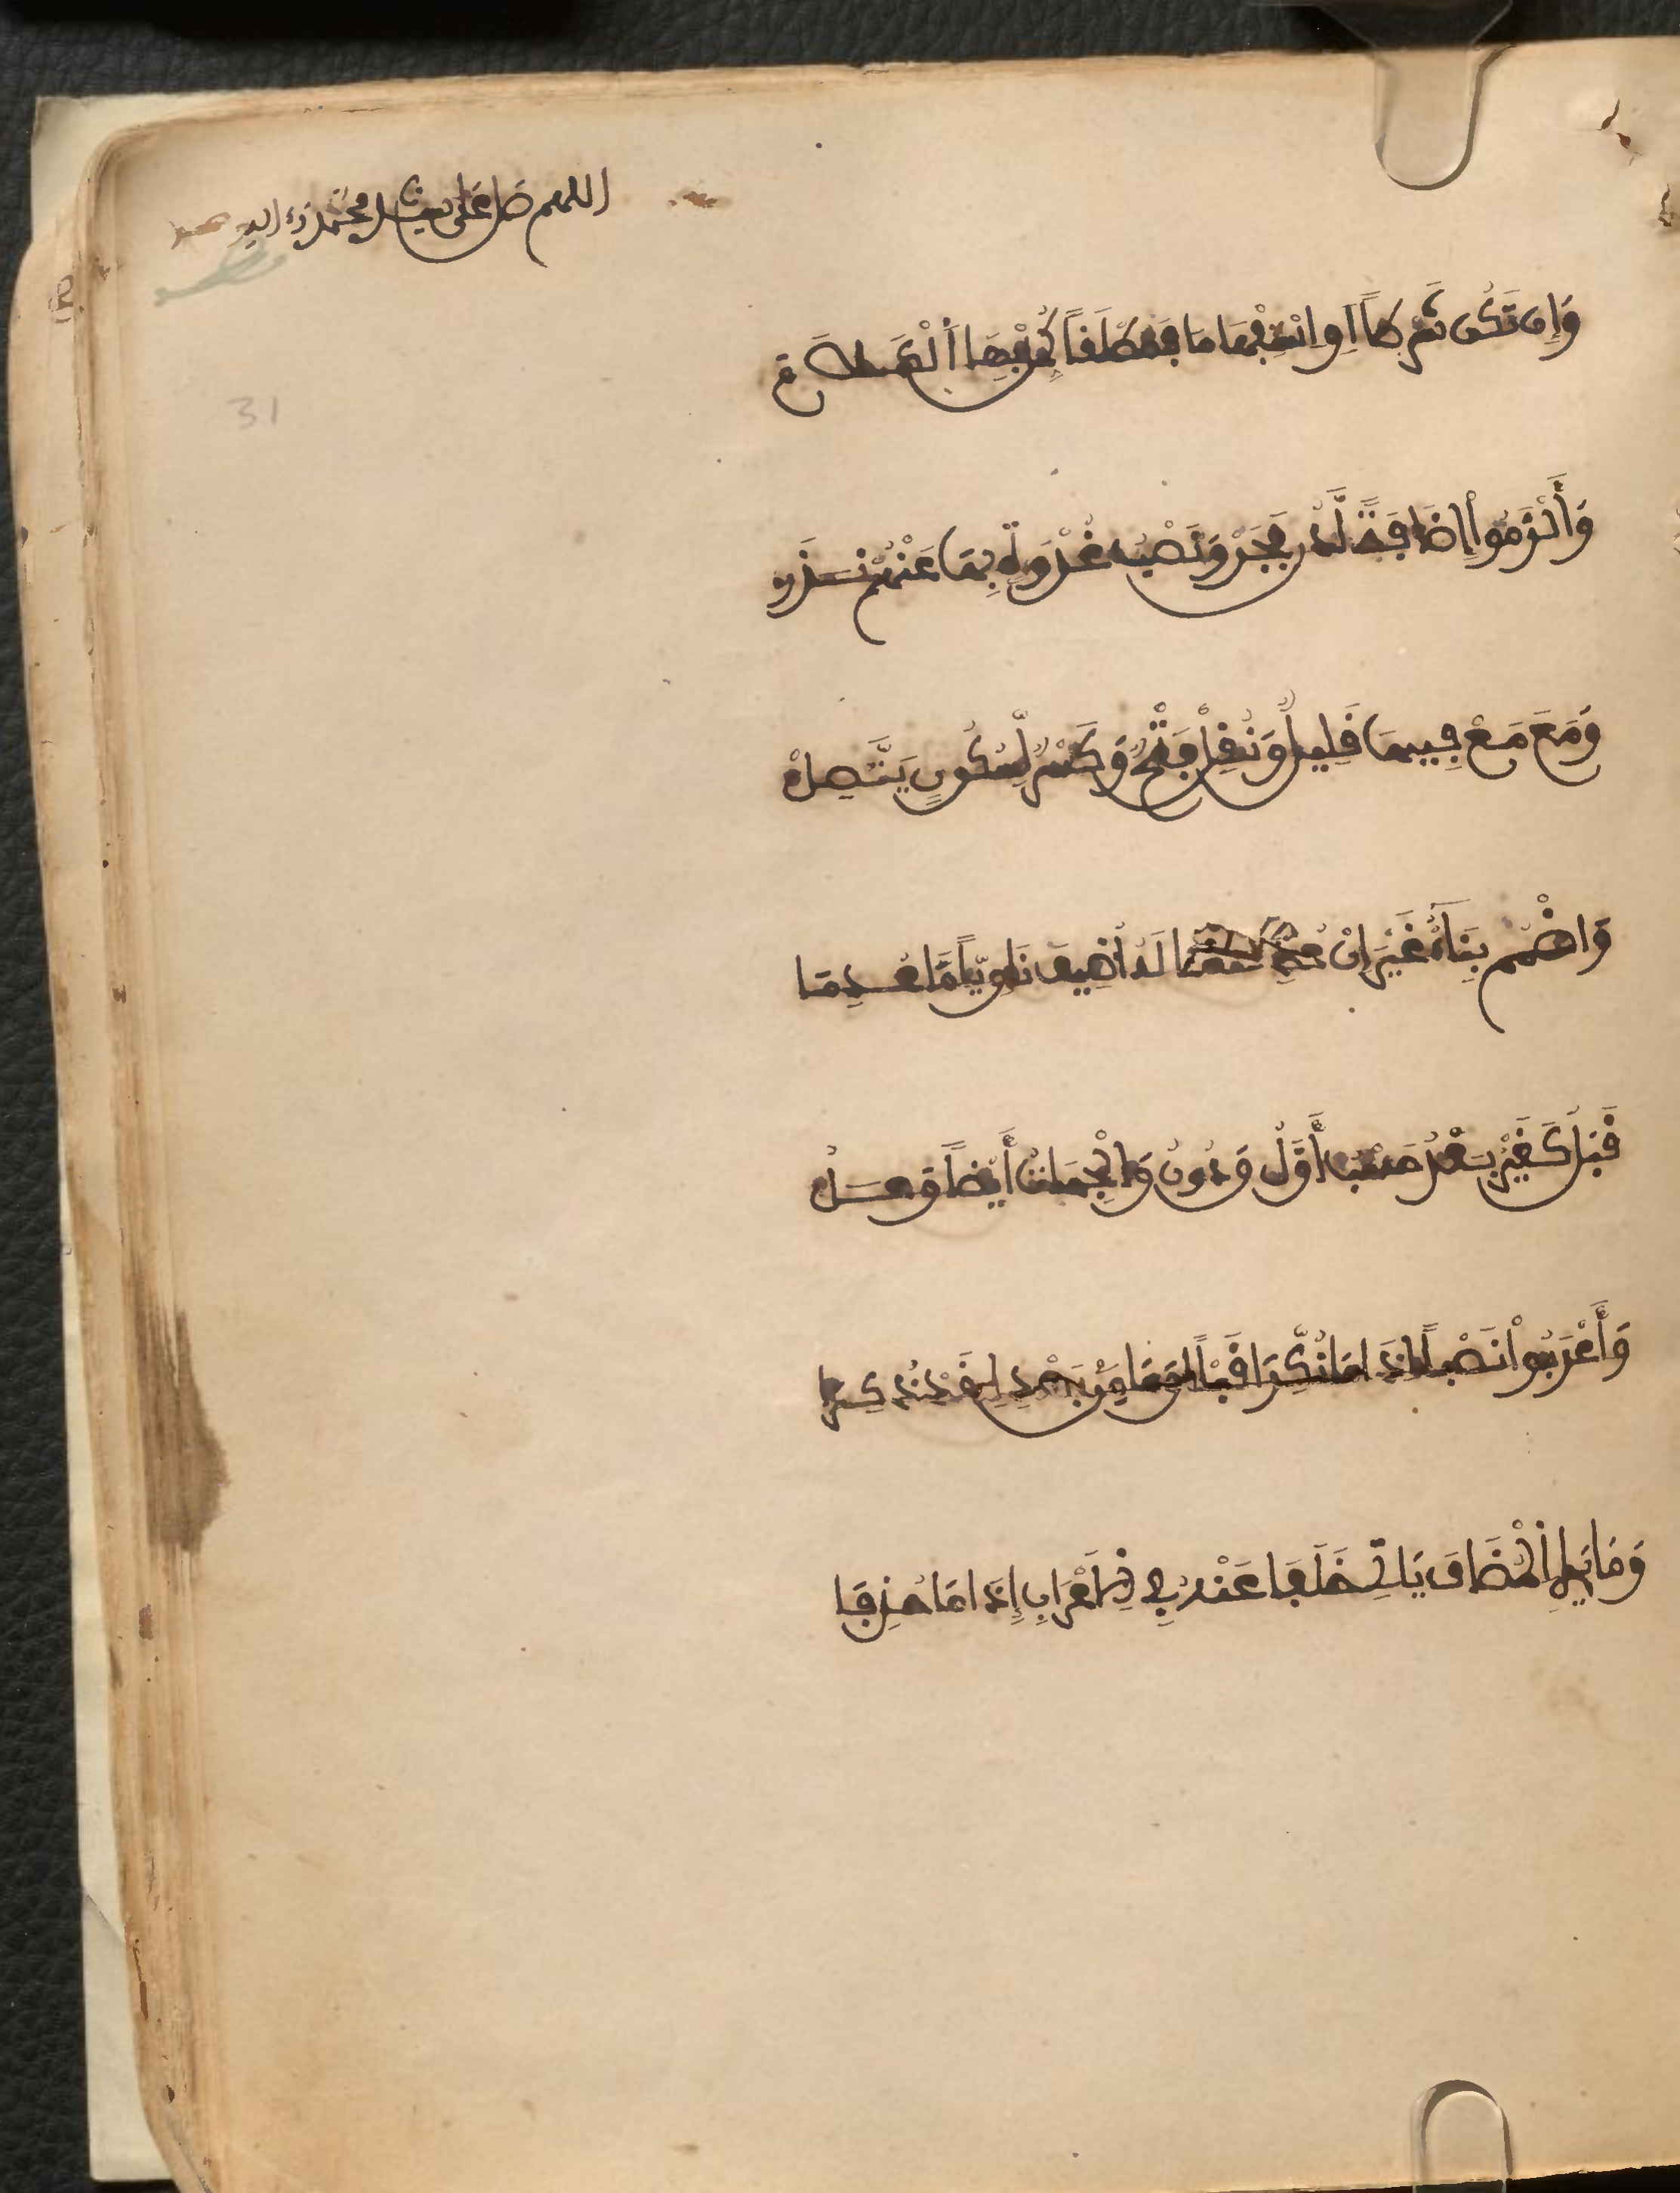 اللهم صل على سيدنا محمد وءاله
31
وَإِن تَكُن شَرْطاً اَوِ اسْتِفْهَامَا فَمُطْلَفاً كَمِّلْ بِهَا أَلْكَلَامَ
وَأَلْزَمُواْ إِضَافَةً لَّدُن فَجَرْ وَنَصْبُ غُدْوَةٍ بِهَا عَنْهُمْ نَدَرْ
وَمَعَ مَعْ فِيهَا فَلِيلٌ وَنُفِلْ فَتْحٌ وَكَسْرٌ لِّسُكُونٍ يَتَّصِلْ
وَاضْمُم بِنَاءً غَيْرَ اِنْ عَدِمْتَ مَا لَهُ أُضِيفَ نَاوِياً مَّا عُدِمَا
قَبْلُ كَغَيْرُ بَعْدُ حَسْبُ أَوَّلُ وَدُونُ وَالْجِهَاتُ أَيْضاً وَعَلُ
وَأَعْرَبُواْ نَصْباً اِذَا مَا نُكِّرَا قَبْلاً وَمَا مِن بَعْدِهِ فَدْ ذُكِرَا
وَمَا يَلِي اِلْمُضَافَ يَاتِي خَلَفَا عَنْهُ فِي اِلِاعْرَابِ إِذَا مَا حُذِفَا